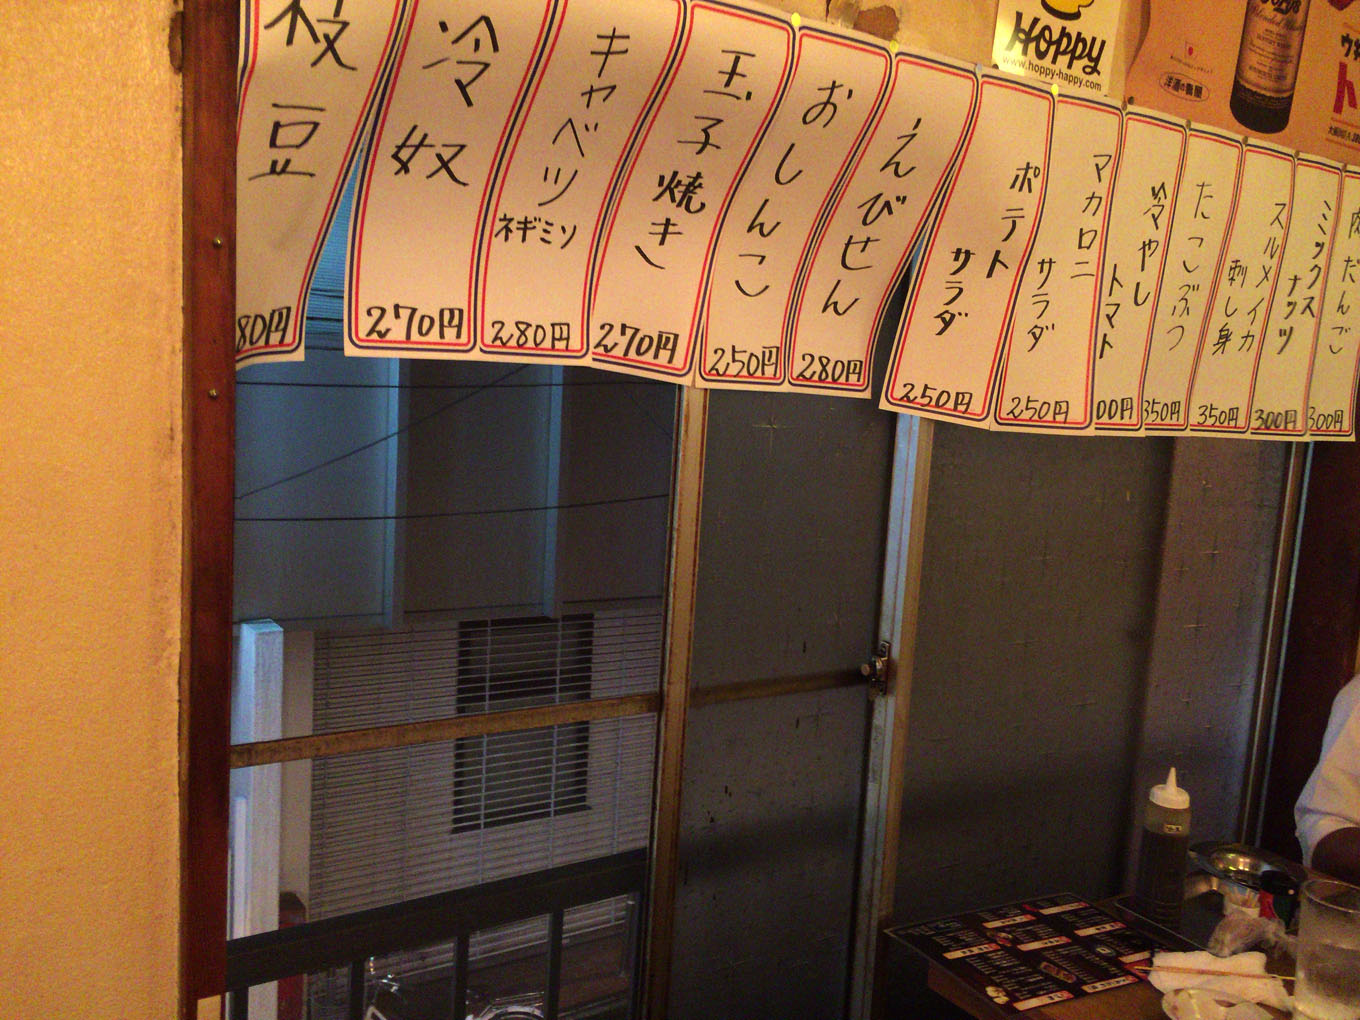 枝豆
80円
冷奴
270円
キャベツ
ネギミソ
280円
玉子焼き
270円
おしんこ
250円
えびせん
280円
ポテト
サラダ
250円
マカロニ
サラダ
250円
冷やし
トマト
00円
たこぶつ
350円
スルメイカ
刺し身
350円
ミックス
ナッツ
300円
肉だんご
300円
HOPPY
www.hoppy-happy.com